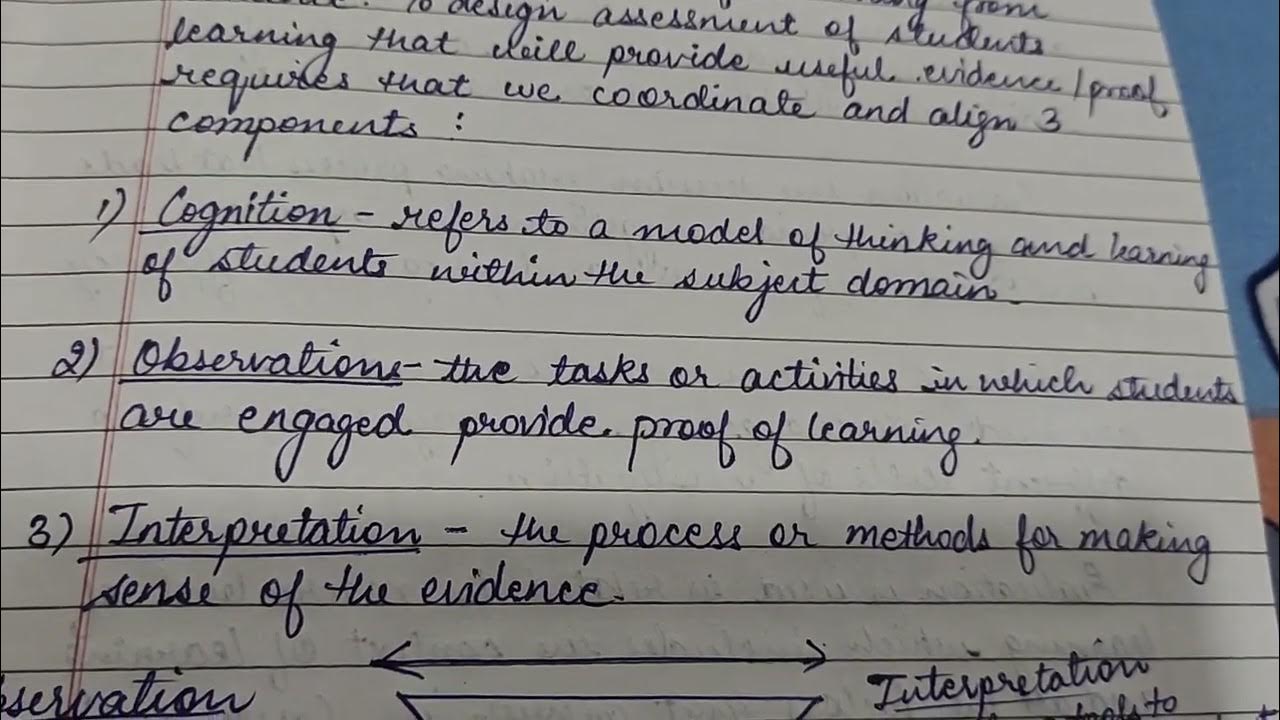 To design assessment of students from
learning that will provide useful evidence/proof
requires that we coordinate and align 3
components :
1) Cognition - refers to a model of thinking and learning
of students within the subject domain.
2) Observations - the tasks or activities in which students
are engaged provide proof of learning.
3) Interpretation - the process or methods for making
sense of the evidence.
servation
Interpretation
to